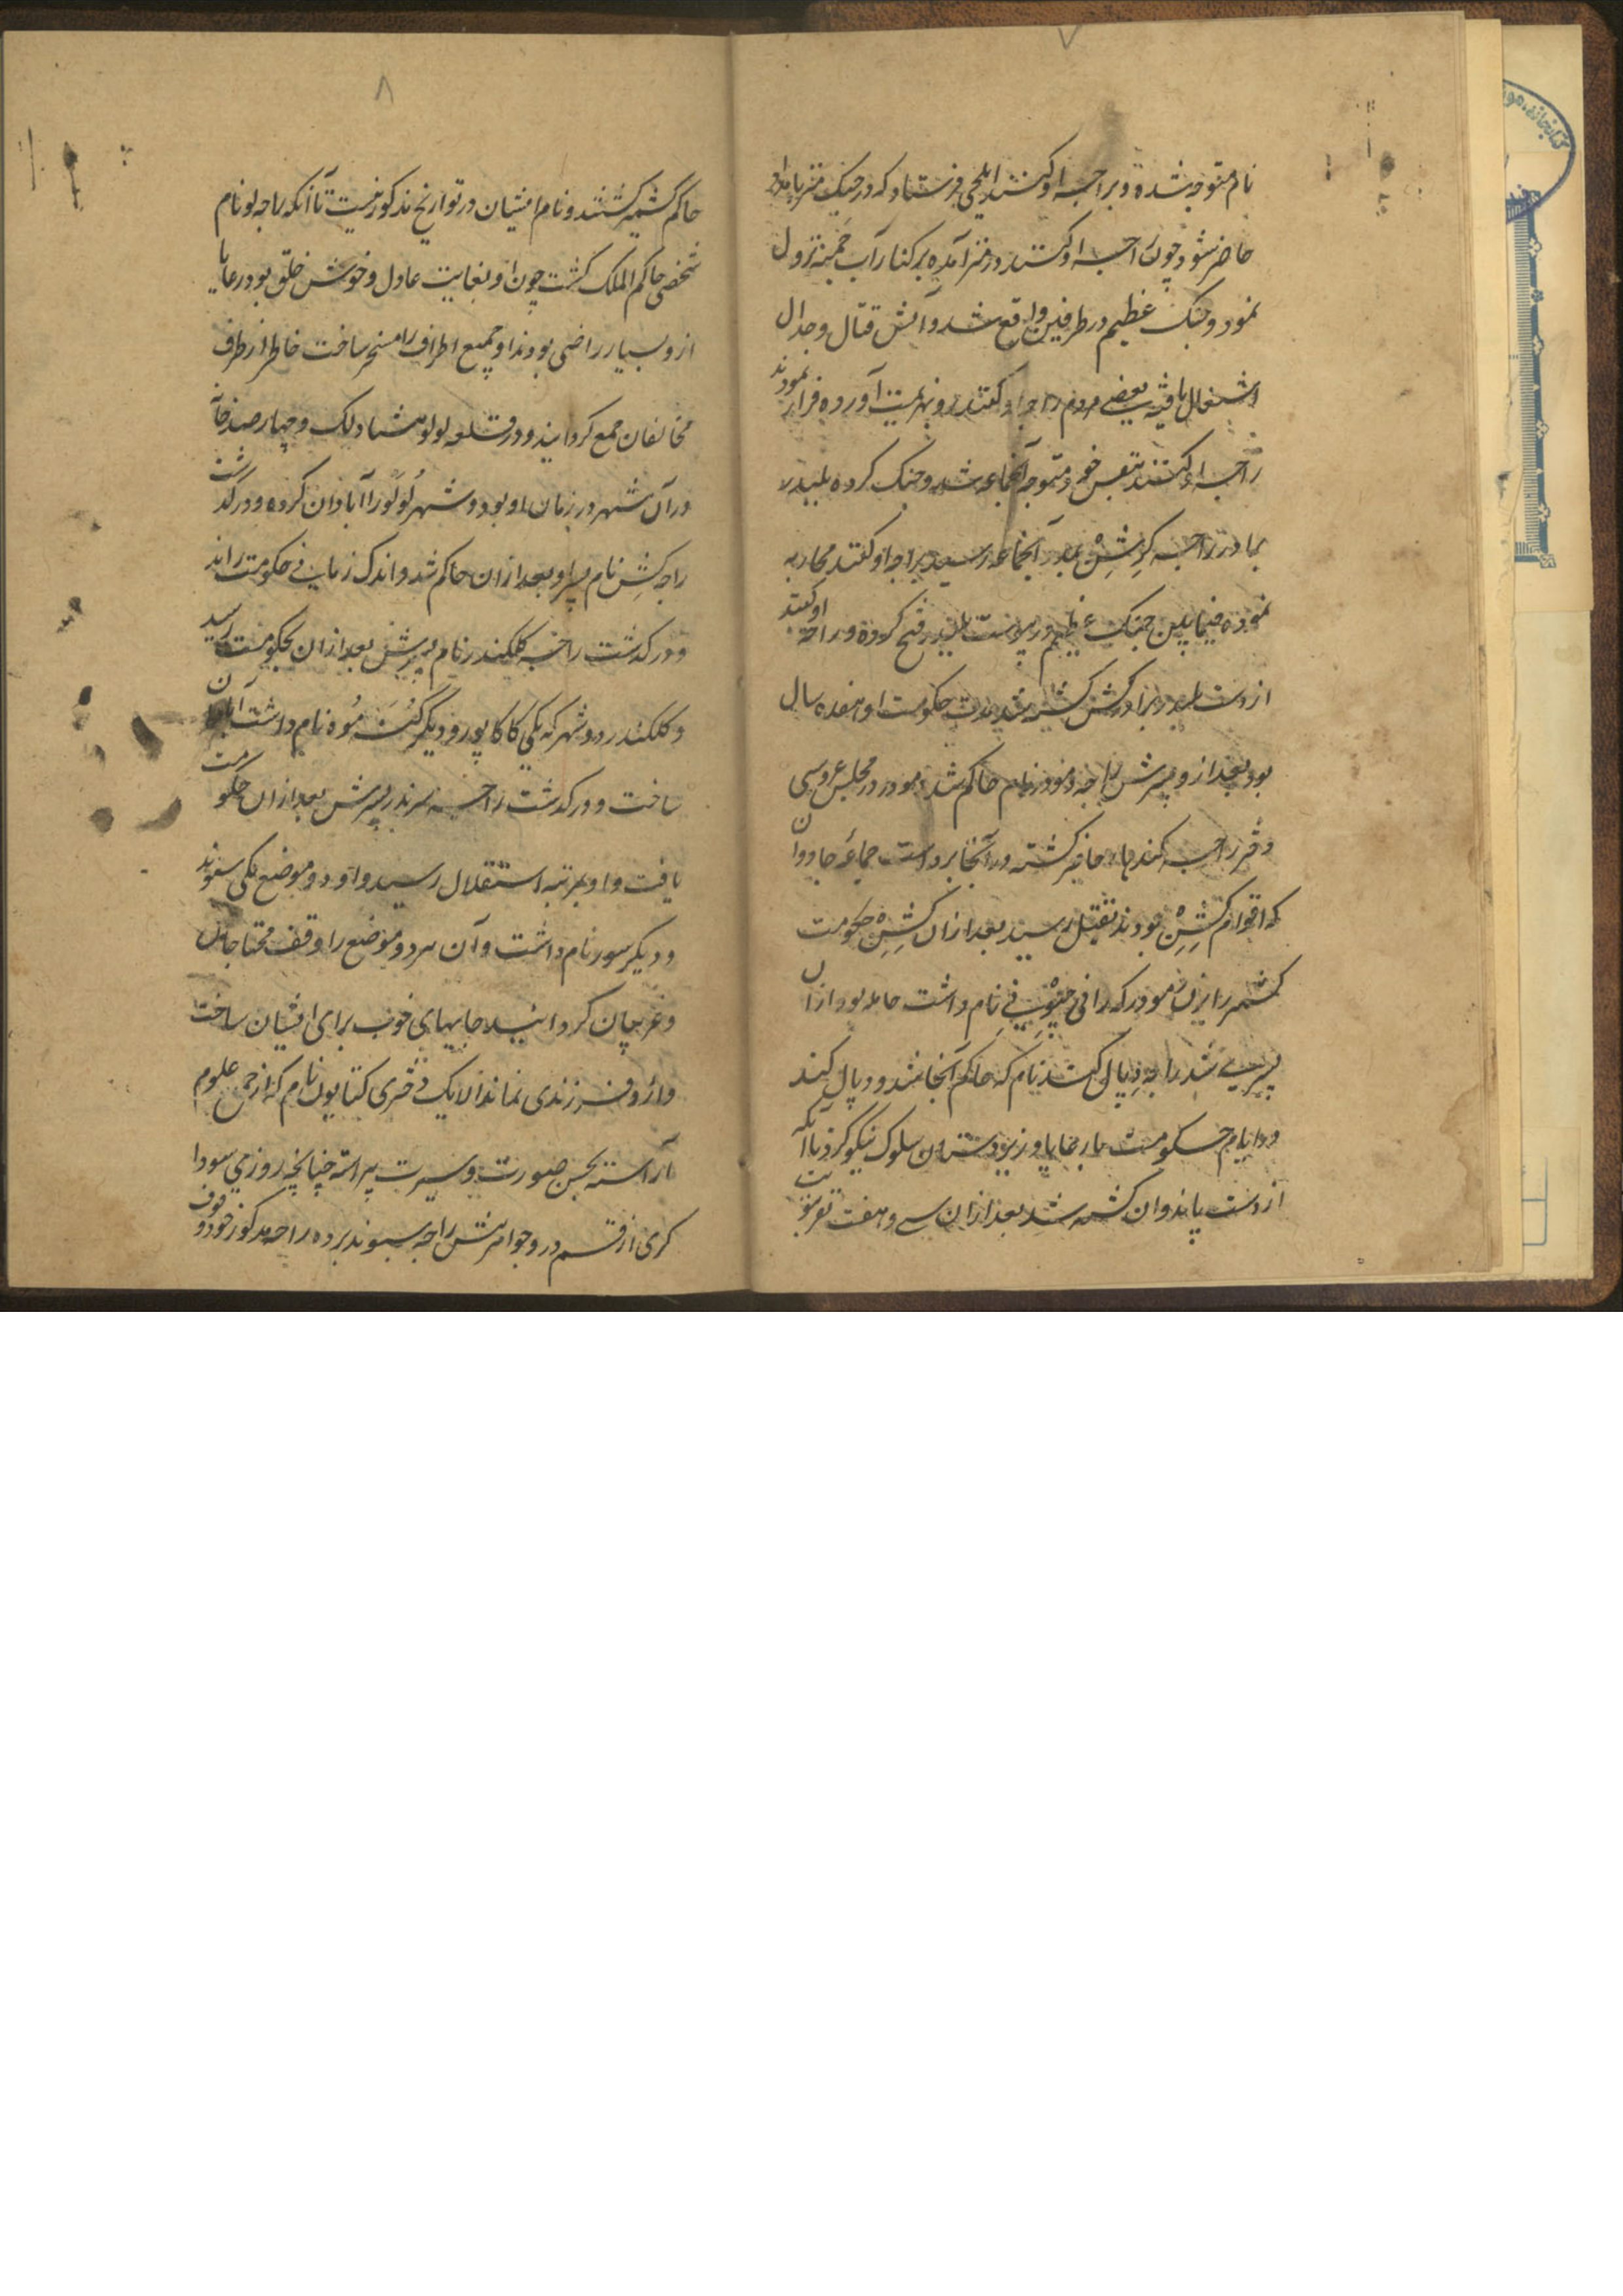 ۷
نام متوجه شده و براجه اوکنند ایلچی فرستاد که در جنگ متر با مداد
حاضر شود چون راجه اوکنند در متر آمده بر کنار آب جمنه نزول
نمود و جنگ عظیم در طرفین واقع شد و آتش قتال و جدال
اشتعال یافته بعضی مردم راجه اوکنند رو بهزیمت آورده فرار نمودند
راجه اوکنند بنفس خود متوجه آنجماعه شد و جنگ کرده بلبدر
برادر راجه کرشن بمدد آنجماعه رسید براجه اوکنند محاربه
نموده فیمابین جنگ عظیم در پیوست بلبدر فتح کرده و راجه اوکنند
از دست بلبدر برادر کشن کشته شد مدت حکومت او هفده سال
بود بعد ازو پسرش راجه دمودر نام حاکم شد دمودر در مجلس عروسی
دختر راجه کندهار حاضر گشته در آنجا بر دست جماعه جادوان
که اقوام کشن بودند بقتل رسید بعد از ان کشن حکومت
کشمیر را بزن دمودر که رانی جنوبتی نام داشت حامله بود از ان
پسری شد راجه دیپال کنند نام که حاکم آنجا شد و دیپال کنند
در ایام حکومت با رعایا و زیردستان سلوک نیکو کرد تا آنکه
از دست پاندوان کشته شد بعد ازان سی و هفت نفر بنوبت
۸
حاکم کشمیر گشتند و نام ایشان در تواریخ مذکور نیست تا آنکه راجه لو نام
شخصی حاکم الملک گشت چون او بغایت عادل و خوش خلق بود رعایا
ازو بسیار راضی بودند او جمیع اطراف را مسخر ساخت خاطر از طرف
مخالفان جمع گردانید و در قلعه لولو هشتاد لک و چهار صد خانه
در آن شهر در زمان او بود و شهر لولو را آبادان کرده و درگذشت
راجه کشن نام پسر او بعد از ان حاکم شد و اندک زمانی حکومت راند
و درگذشت راجه کلکندر نام پسرش بعد از ان بحکومت رسید
و کلکندر دو شهر که یکی کاکاپور و دیگر کنه موه نام داشت آبادان
ساخت و درگذشت راجه سرندر پسرش بعد از ان حکومت
یافت و او بمرتبه استقلال رسید و او دو موضع یکی سوند
و دیگر سور نام داشت و آن هر دو موضع را وقف محتاجان
و غریبان گردانید جایهای خوب برای ایشان ساخت
و ازو فرزندی نماند الا یک دختری کتابون نام که از جمیع علوم
آراسته بحسن صورت و سیرت پیراسته چنانچه روزی سودا
گری از قسم در و جواهر پیش راجه سوند برده راجه مذکور خود وقوف